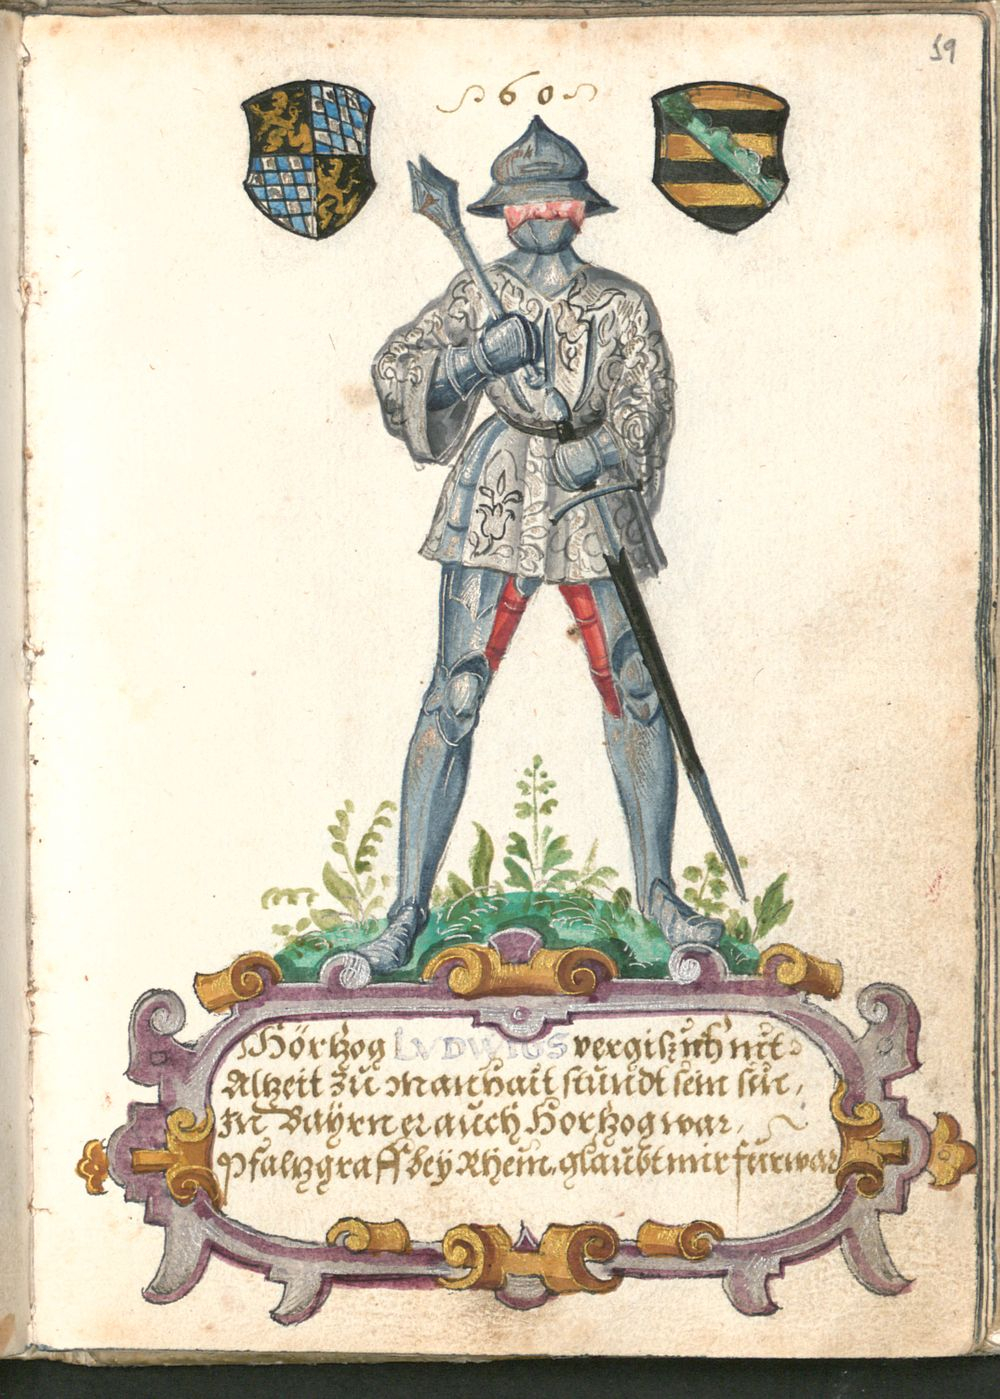 59
60
Hörtzog LVDWIGS vergiß ich nit
Altzeit zu Manhait stundt sein sin,
In Bayrn er auch Hortzog war,
Pfaltzgraff bey Rhein, glaubt mir fürwar